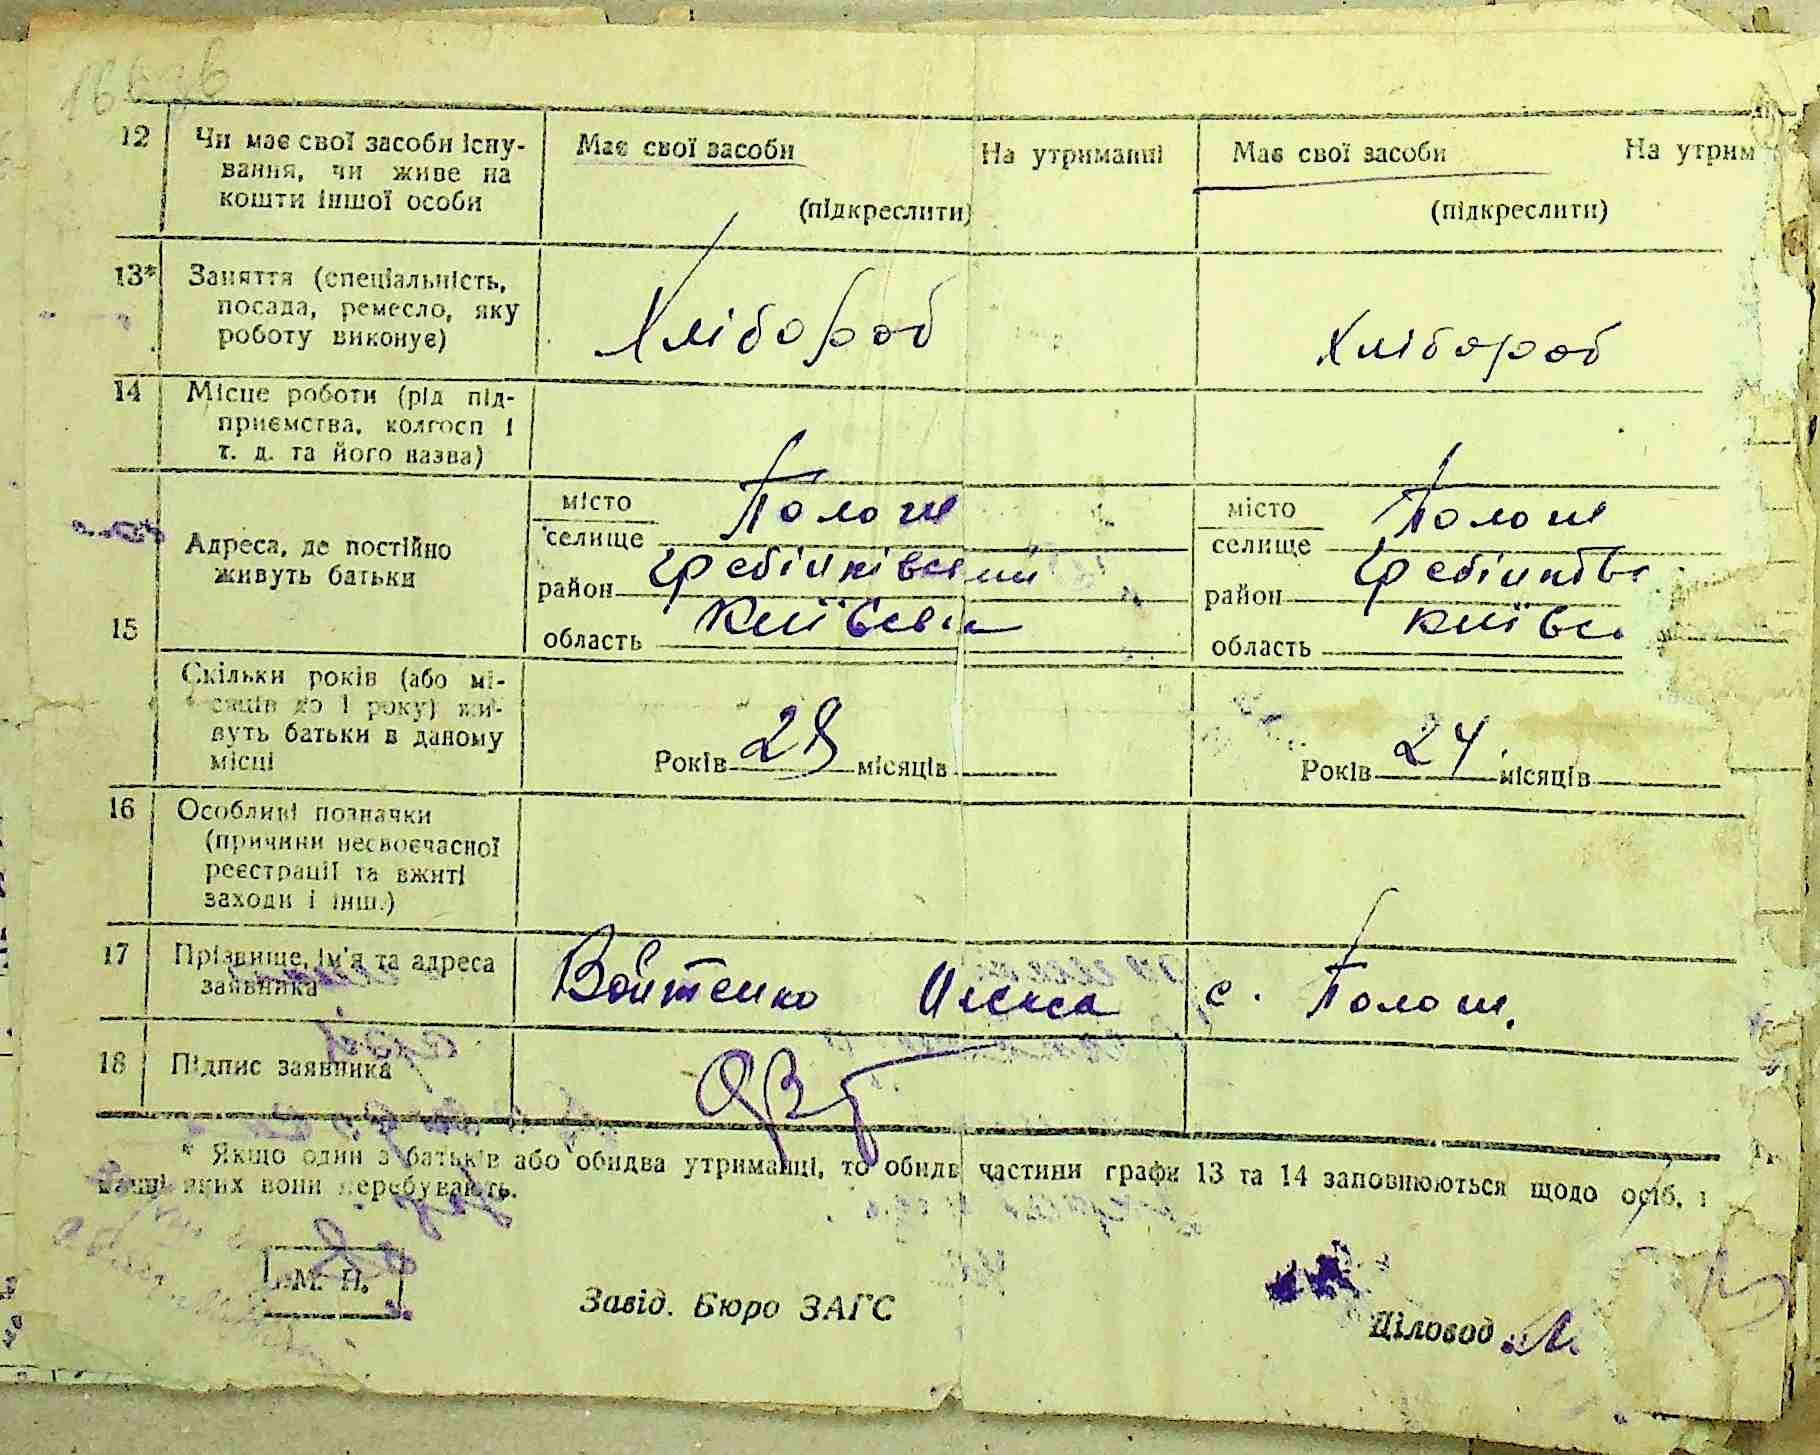 12 Чи має свої засоби існу- Має свої засоби На утриманні Має свої засоби На утрим
вання, чи живе на
кошти іншої особи (підкреслити) (підкреслити)
13* Заняття (спеціальність,
посада, ремесло, яку Хлібороб Хлібороб
роботу виконує)
14 Місце роботи (рід під-
приємства, колгосп і
т. д. та його назва)
місто Пологи місто Пологи
селище селище
15 Адреса, де постійно
живуть батьки
район Гребінківський район Гребінківс
область Київська область Київс
Скільки років (або мі-
сяців до 1 року) жи-
вуть батьки в даному
місці Років 28 місяців Років 24 місяців
16 Особливі позначки
(причини несвоєчасної
реєстрації та вжиті
заходи і інш.)
17 Прізвище, ім'я та адреса Войтенко Олекса с. Пологи.
заявника
18 Підпис заявника
* Якщо один з батьків або обидва утриманці, то обидві частини графи 13 та 14 заповнюються щодо осіб,
яких вони перебувають.
М. П. Завід. Бюро ЗАГС Діловод